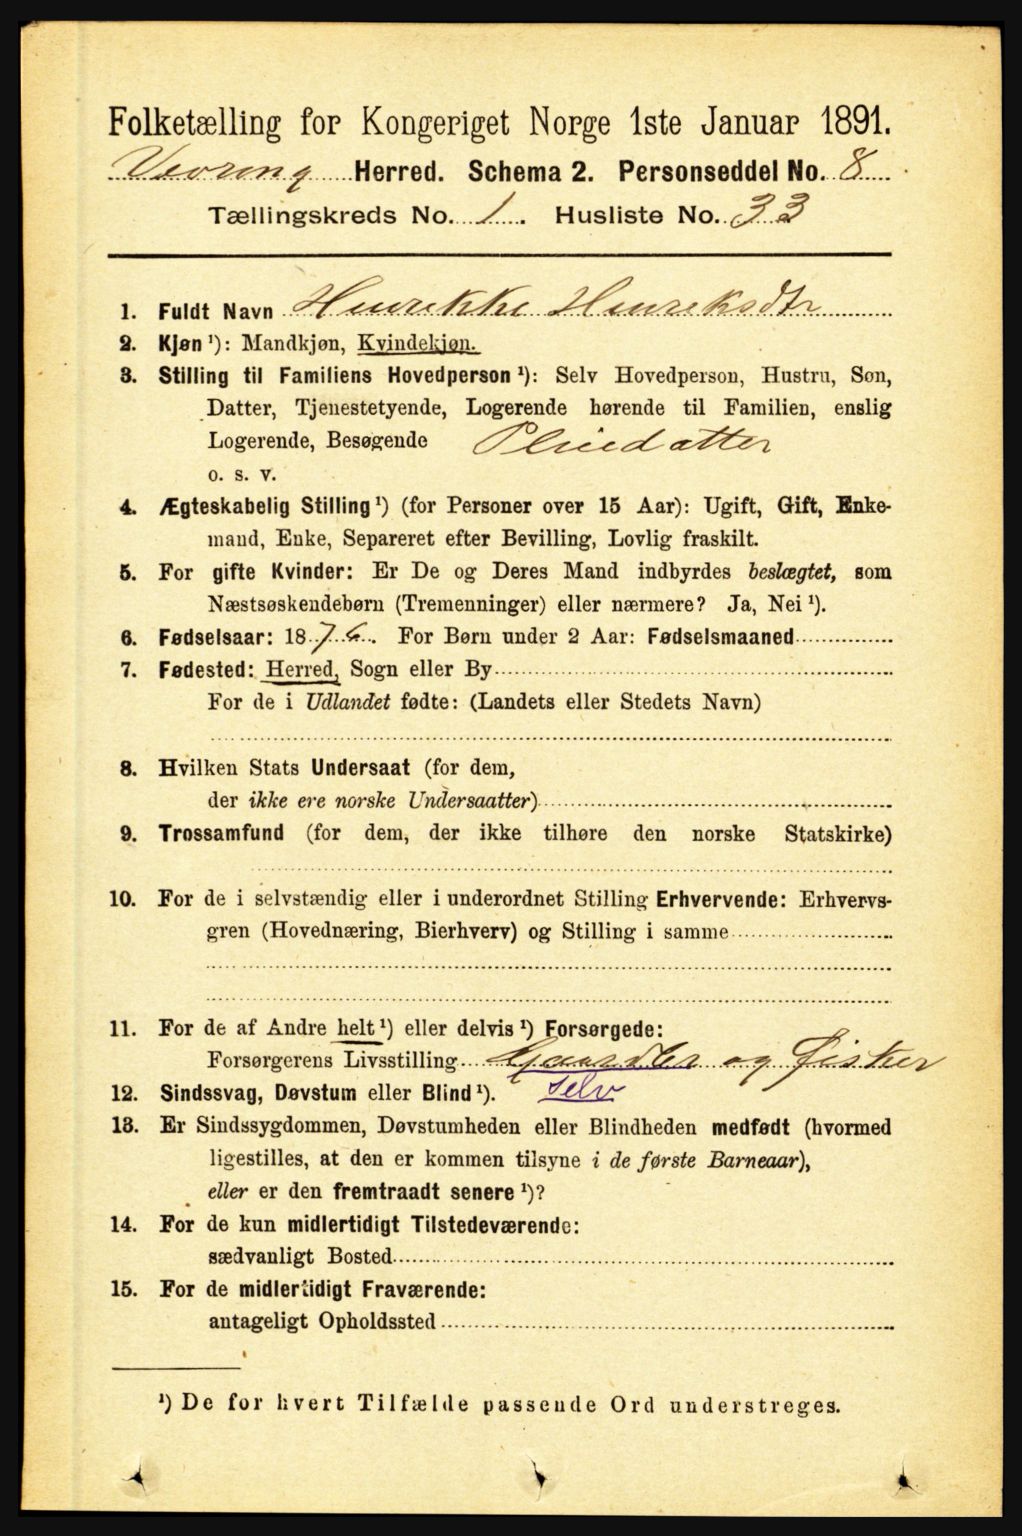 Folketælling for Kongeriget Norge 1ste Januar 1891.
Vevring Herred. Schema 2. Personseddel No. 8
Tællingskreds No. 1. Husliste No. 33
1. Fuldt Navn Henrikke Henriksdtr
2. Kjøn ¹): Mandkjøn, Kvindekjøn.
3. Stilling til Familiens Hovedperson ¹): Selv Hovedperson, Hustru, Søn,
Datter, Tjenestetyende, Logerende hørende til Familien, enslig
Logerende, Besøgende Pleiedatter
o. s. v.
4. Ægteskabelig Stilling ¹) (for Personer over 15 Aar): Ugift, Gift, Enke-
mand, Enke, Separeret efter Bevilling, Lovlig fraskilt.
5. For gifte Kvinder: Er De og Deres Mand indbyrdes beslægtet, som
Næstsøskendebørn (Tremenninger) eller nærmere? Ja, Nei ¹).
6. Fødselsaar: 1876. For Børn under 2 Aar: Fødselsmaaned
7. Fødested: Herred, Sogn eller By
For de i Udlandet fødte: (Landets eller Stedets Navn)
8. Hvilken Stats Undersaat (for dem,
der ikke ere norske Undersaatter)
9. Trossamfund (for dem, der ikke tilhøre den norske Statskirke)
10. For de i selvstændig eller i underordnet Stilling Erhvervende: Erhvervs-
gren (Hovednæring, Bierhverv) og Stilling i samme
11. For de af Andre helt ¹) eller delvis ¹) Forsørgede:
Forsørgerens Livsstilling Gaardbr og Fisker
12. Sindssvag, Døvstum eller Blind ¹). selv
13. Er Sindssygdommen, Døvstumheden eller Blindheden medfødt (hvormed
ligestilles, at den er kommen tilsyne i de første Barneaar),
eller er den fremtraadt senere ¹)?
14. For de kun midlertidigt Tilstedeværende:
sædvanligt Bosted
15. For de midlertidigt Fraværende:
antageligt Opholdssted
¹) De for hvert Tilfælde passende Ord understreges.